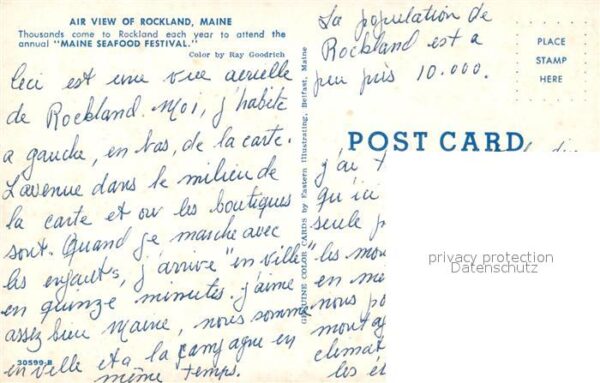 AIR VIEW OF ROCKLAND, MAINE
Thousands come to Rockland each year to attend the
annual "MAINE SEAFOOD FESTIVAL."
Color by Ray Goodrich
Ceci est une vue aerielle
de Rockland. Moi, j'habite
a gauche, en bas, de la carte.
L'avenue dans le milieu de
la carte et ou les boutiques
sont. Quand je marche avec
les enfants, j'arrive "en ville"
en quinze minutes. j'aime
assez bien Maine, nous sommes
en ville et a la campagne en
même temps.
30599-B
GENUINE COLOR CARDS by Eastern Illustrating, Belfast, Maine
La population de
Rockland est a
peu près 10.000.
PLACE
STAMP
HERE
POST CARD
j'ai
qu'ici
seule p
les mon
en me
nous po
montag
climat
les é
privacy protection
Datenschutz